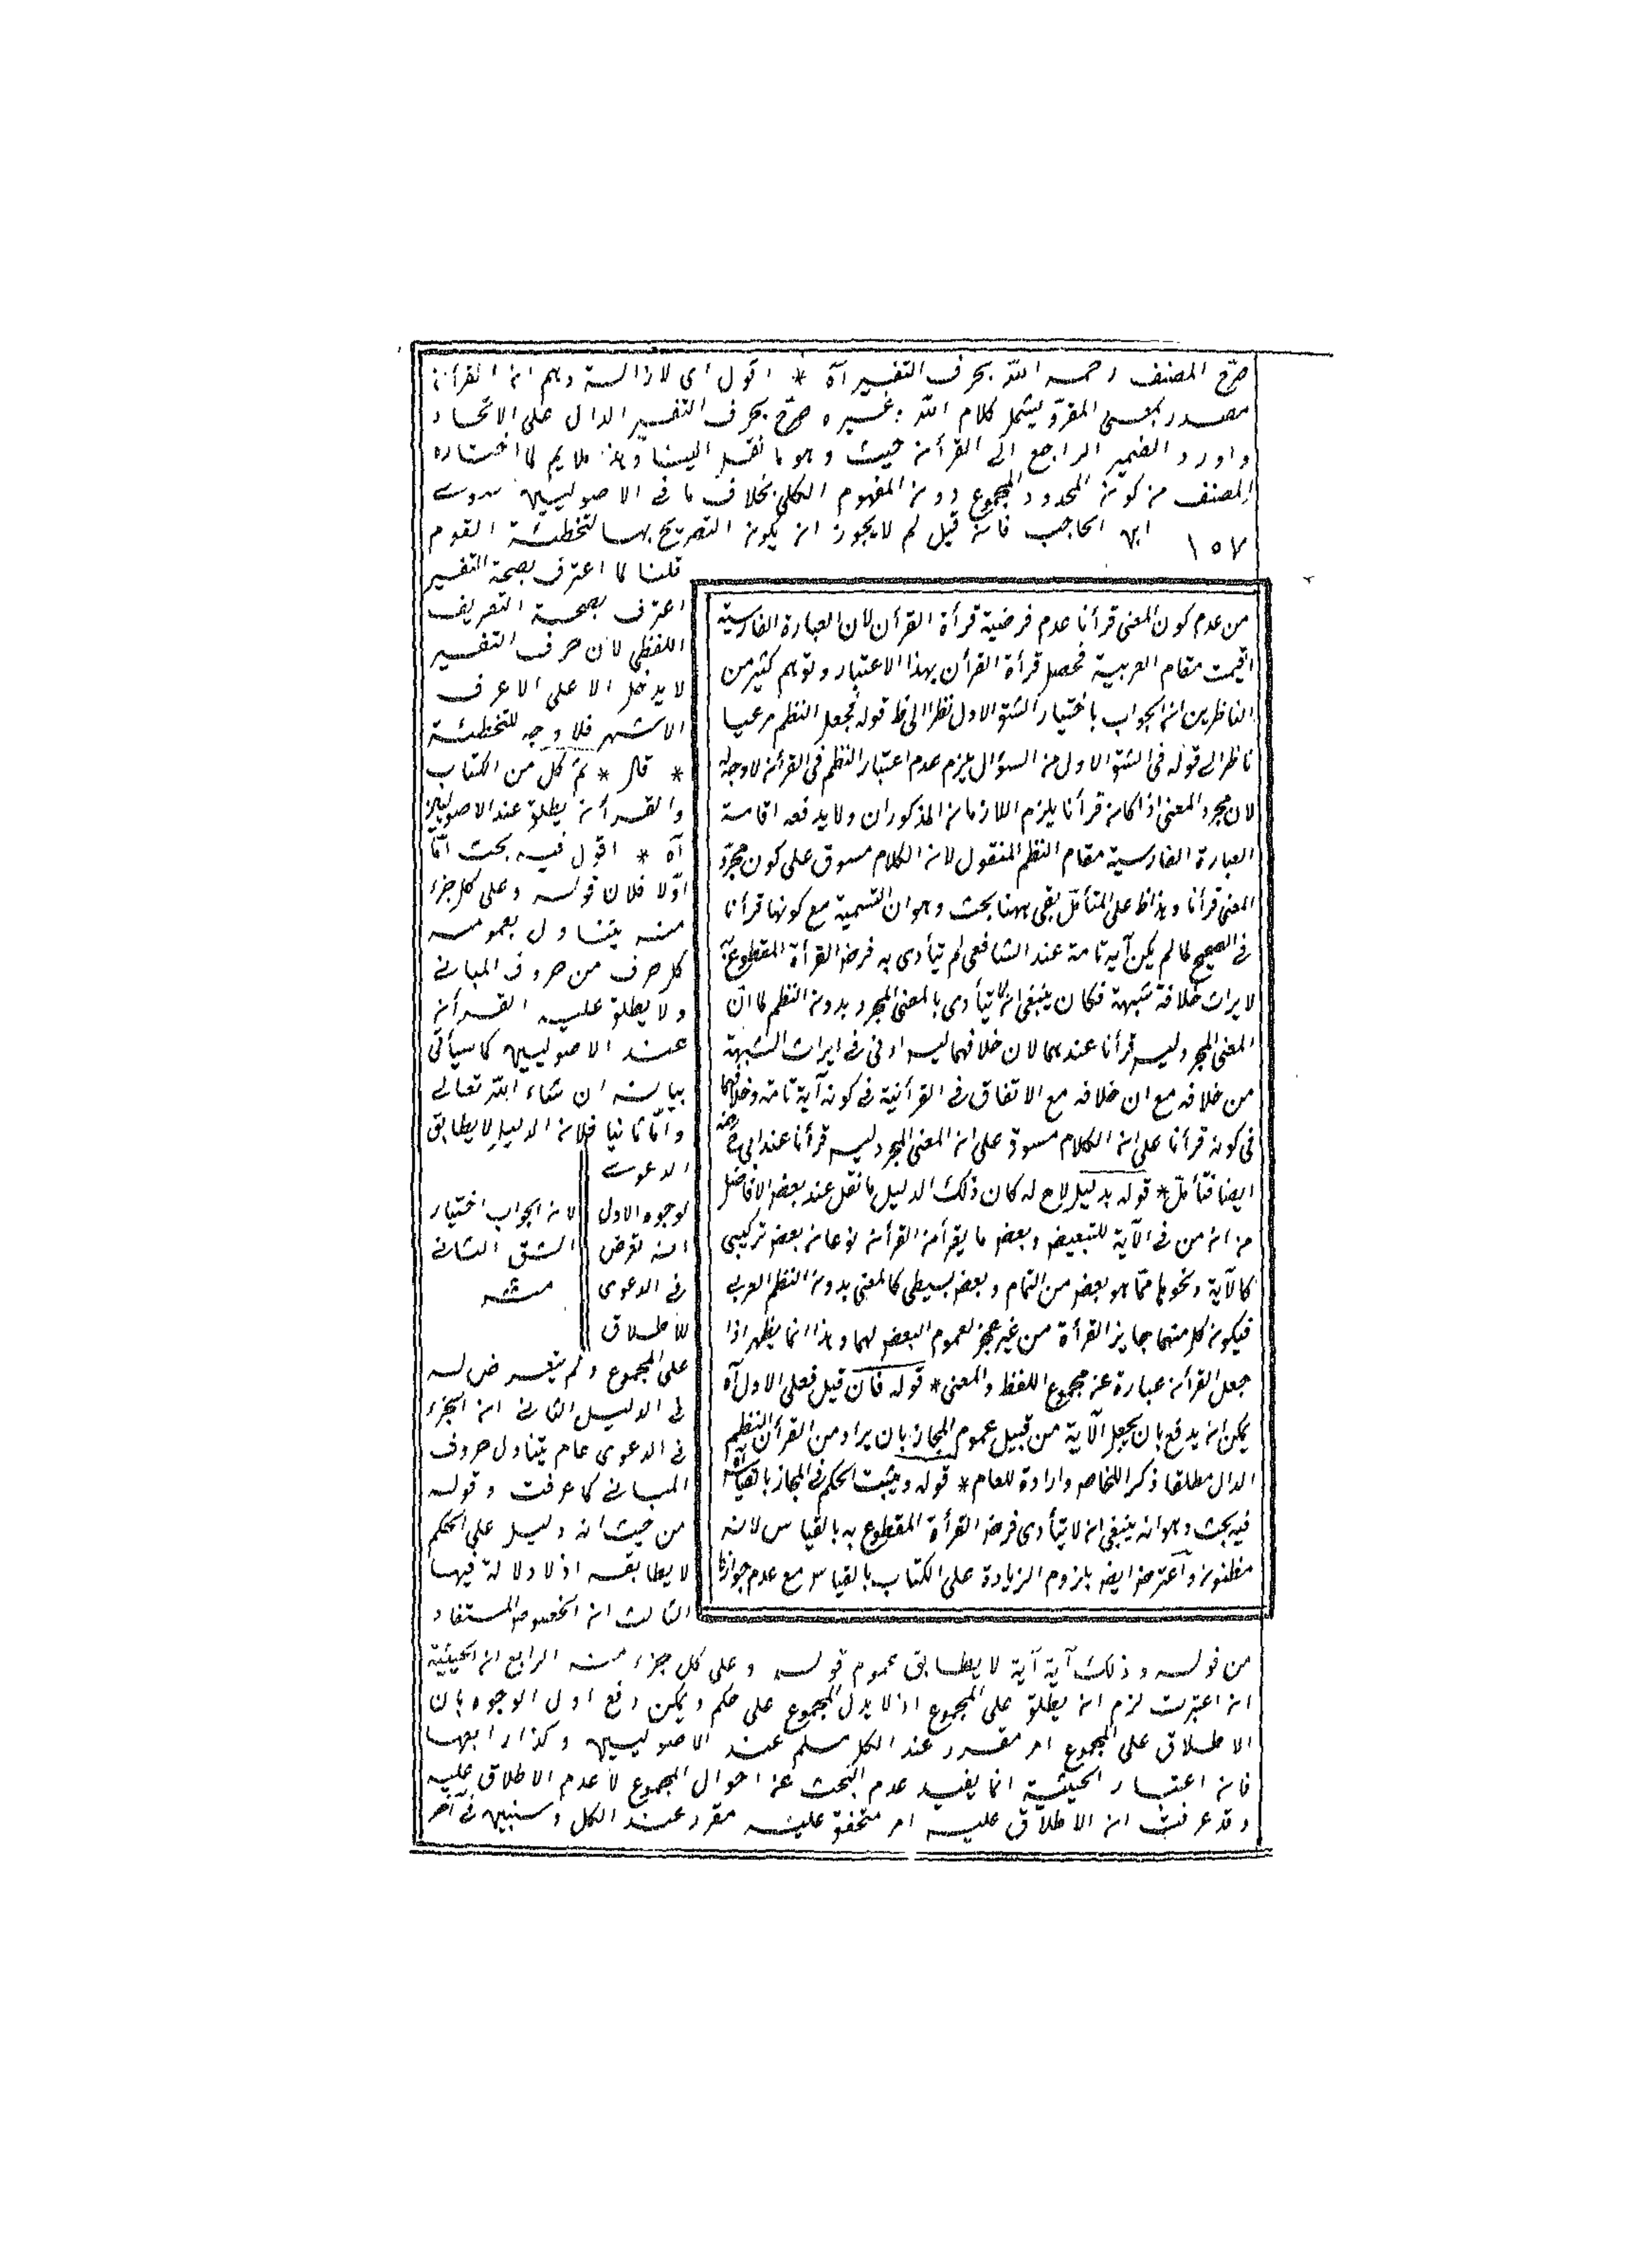 صرّح المصنف رحمه الله بحرف التفسير آه * اقول اى لازالة وهم ان القرأن
مصدر بمعنى المقرؤ يشمل كلام الله وغيره صرّح بحرف التفسير الدال على الاتحاد
واورد الضمير الراجع الى القرأن حيث وهو ما نقل الينا وهذا ملايم لما اختاره
المصنف من كون المحدود المجموع دون المفهوم الكلى بخلاف ما فى الاصوليين سوى
١٥٧ ابن الحاجب فان قيل لم لا يجوز ان يكون التصريح بها لتخطئة القوم
قلنا لما اعترف بصحة التفسير
اعترف بصحة التعريف
اللفظى لان حرف التفسير
لا يدخل الا على الاعرف
الاشهر فلا وجه للتخطئة
* قال * ثم كل من الكتاب
والقرأن يطلق عند الاصوليين
آه * اقول فيه بحث امّا
اوّلا فلان قوله وعلى كل جزء
منه يتناول بعمومه
كل حرف من حروف المبانى
ولا يطلق عليه القرأن
عند الاصوليين كما سيأتى
بيانه ان شاء الله تعالى
وامّا ثانيا فلان الدليل لا يطابق
الدعوى
لوجوه الاول
انه تعرض
فى الدعوى
للاطلاق
على المجموع ولم يتعرض له
فى الدليل الثانى ان الجزء
فى الدعوى عام يتناول حروف
المبانى كما عرفت وقوله
من حيث انه دليل على الحكم
لا يطابقه اذ لا دلالة فيها
الثالث ان الخصوص المستفاد
من قوله وذلك آية آية لا يطابق عموم قوله وعلى كل جزء منه الرابع ان الحيثية
ان اعتبرت لزم ان يطلق على المجموع اذ لا يدل المجموع على حكم ويمكن دفع اول الوجوه بان
الاطلاق على المجموع امر مقرر عند الكل مسلم عند الاصوليين وكذا رابعها
فان اعتبار الحيثية انما يفيد عدم البحث عن احوال المجموع لا عدم الاطلاق عليه
وقد عرفت ان الاطلاق عليه امر متحقق عليه مقرر عند الكل وسنبين فى آخر
لان الجواب اختيار
الشق الثانى
منه
من عدم كون المعنى قرأنا عدم فرضية قرأة القرأن لان العبارة الفارسية
اقيمت مقام العربية فحصل قرأة القرأن بهذا الاعتبار وتوهم كثير من
الناظرين ان الجواب باختيار الشق الاول نظرا الى ظ قوله فجعل النظم مرعيا
ناظر الى قوله فى الشق الاول من السؤال يلزم عدم اعتبار النظم فى القرأن لا وجه له
لان مجرد المعنى اذا كان قرأنا يلزم اللازمان المذكوران ولا يدفعه اقامة
العبارة الفارسية مقام النظم المنقول لان الكلام مسوق على كون مجرّد
المعنى قرأنا وهذا ظ على المتأمل بقى ههنا بحث وهو ان التسمية مع كونها قرأنا
فى الصحيح لما لم يكن آية تامة عند الشافعى لم يتأدى به فرض القرأة المقطوع
لايراث خلافه شبهة فكان ينبغى ان لا يتأدى بالمعنى المجرد بدون النظم لما انّ
المعنى المجرد ليس قرأنا عندهما لان خلافهما ليس ادنى فى ايراث الشبهة
من خلافه مع ان خلافه مع الاتفاق فى القرأنية فى كونه آية تامة وخلافهما
فى كونه قرأنا على ان الكلام مسوق على ان المعنى المجرد ليس قرأنا عند ابى ح
ايضا فتأمل * قوله بدليل لاح له كان ذلك الدليل ما نقل عند بعض الافاضل
من ان من فى الآية للتبعيض وبعض ما يقرأ من القرأن نوعان بعض تركيبى
كالآية ونحوها ممّا هو بعض من التمام وبعض بسيطى كالمعنى بدون النظم العربى
فيكون كل منهما جايز القرأة من غير عجز لعموم البعض لهما وهذا انما يظهر اذا
جعل القرأن عبارة عن مجموع اللفظ والمعنى * قوله فان قيل فعلى الاول آه
يمكن ان يدفع بان يجعل الآية من قبيل عموم المجاز بان يراد من القرأن النظم
الدال مطلقا ذكر اللخاص وارادة للعام * قوله ويثبت الحكم فى المجاز بالقياس آه
فيه بحث وهو انه ينبغى ان لا يتأدى فرض القرأة المقطوع به بالقياس لانه
مظنون واعترض ايضا بلزوم الزيادة على الكتاب بالقياس مع عدم جوازها